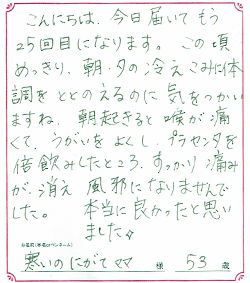 こんにちは、今日届いてもう
25回目になります。この頃
めっきり、朝・夕の冷えこみに体
調をととのえるのに気をつかい
ますね、朝起きると喉が痛
くて、うがいをよくし、プラセンタを
倍飲みしたところ、すっかり痛み
が消え 風邪になりませんで
した。本当に良かったと思い
ました☆
お名前(本名orペンネーム)
寒いのにがてママ 様 53 歳